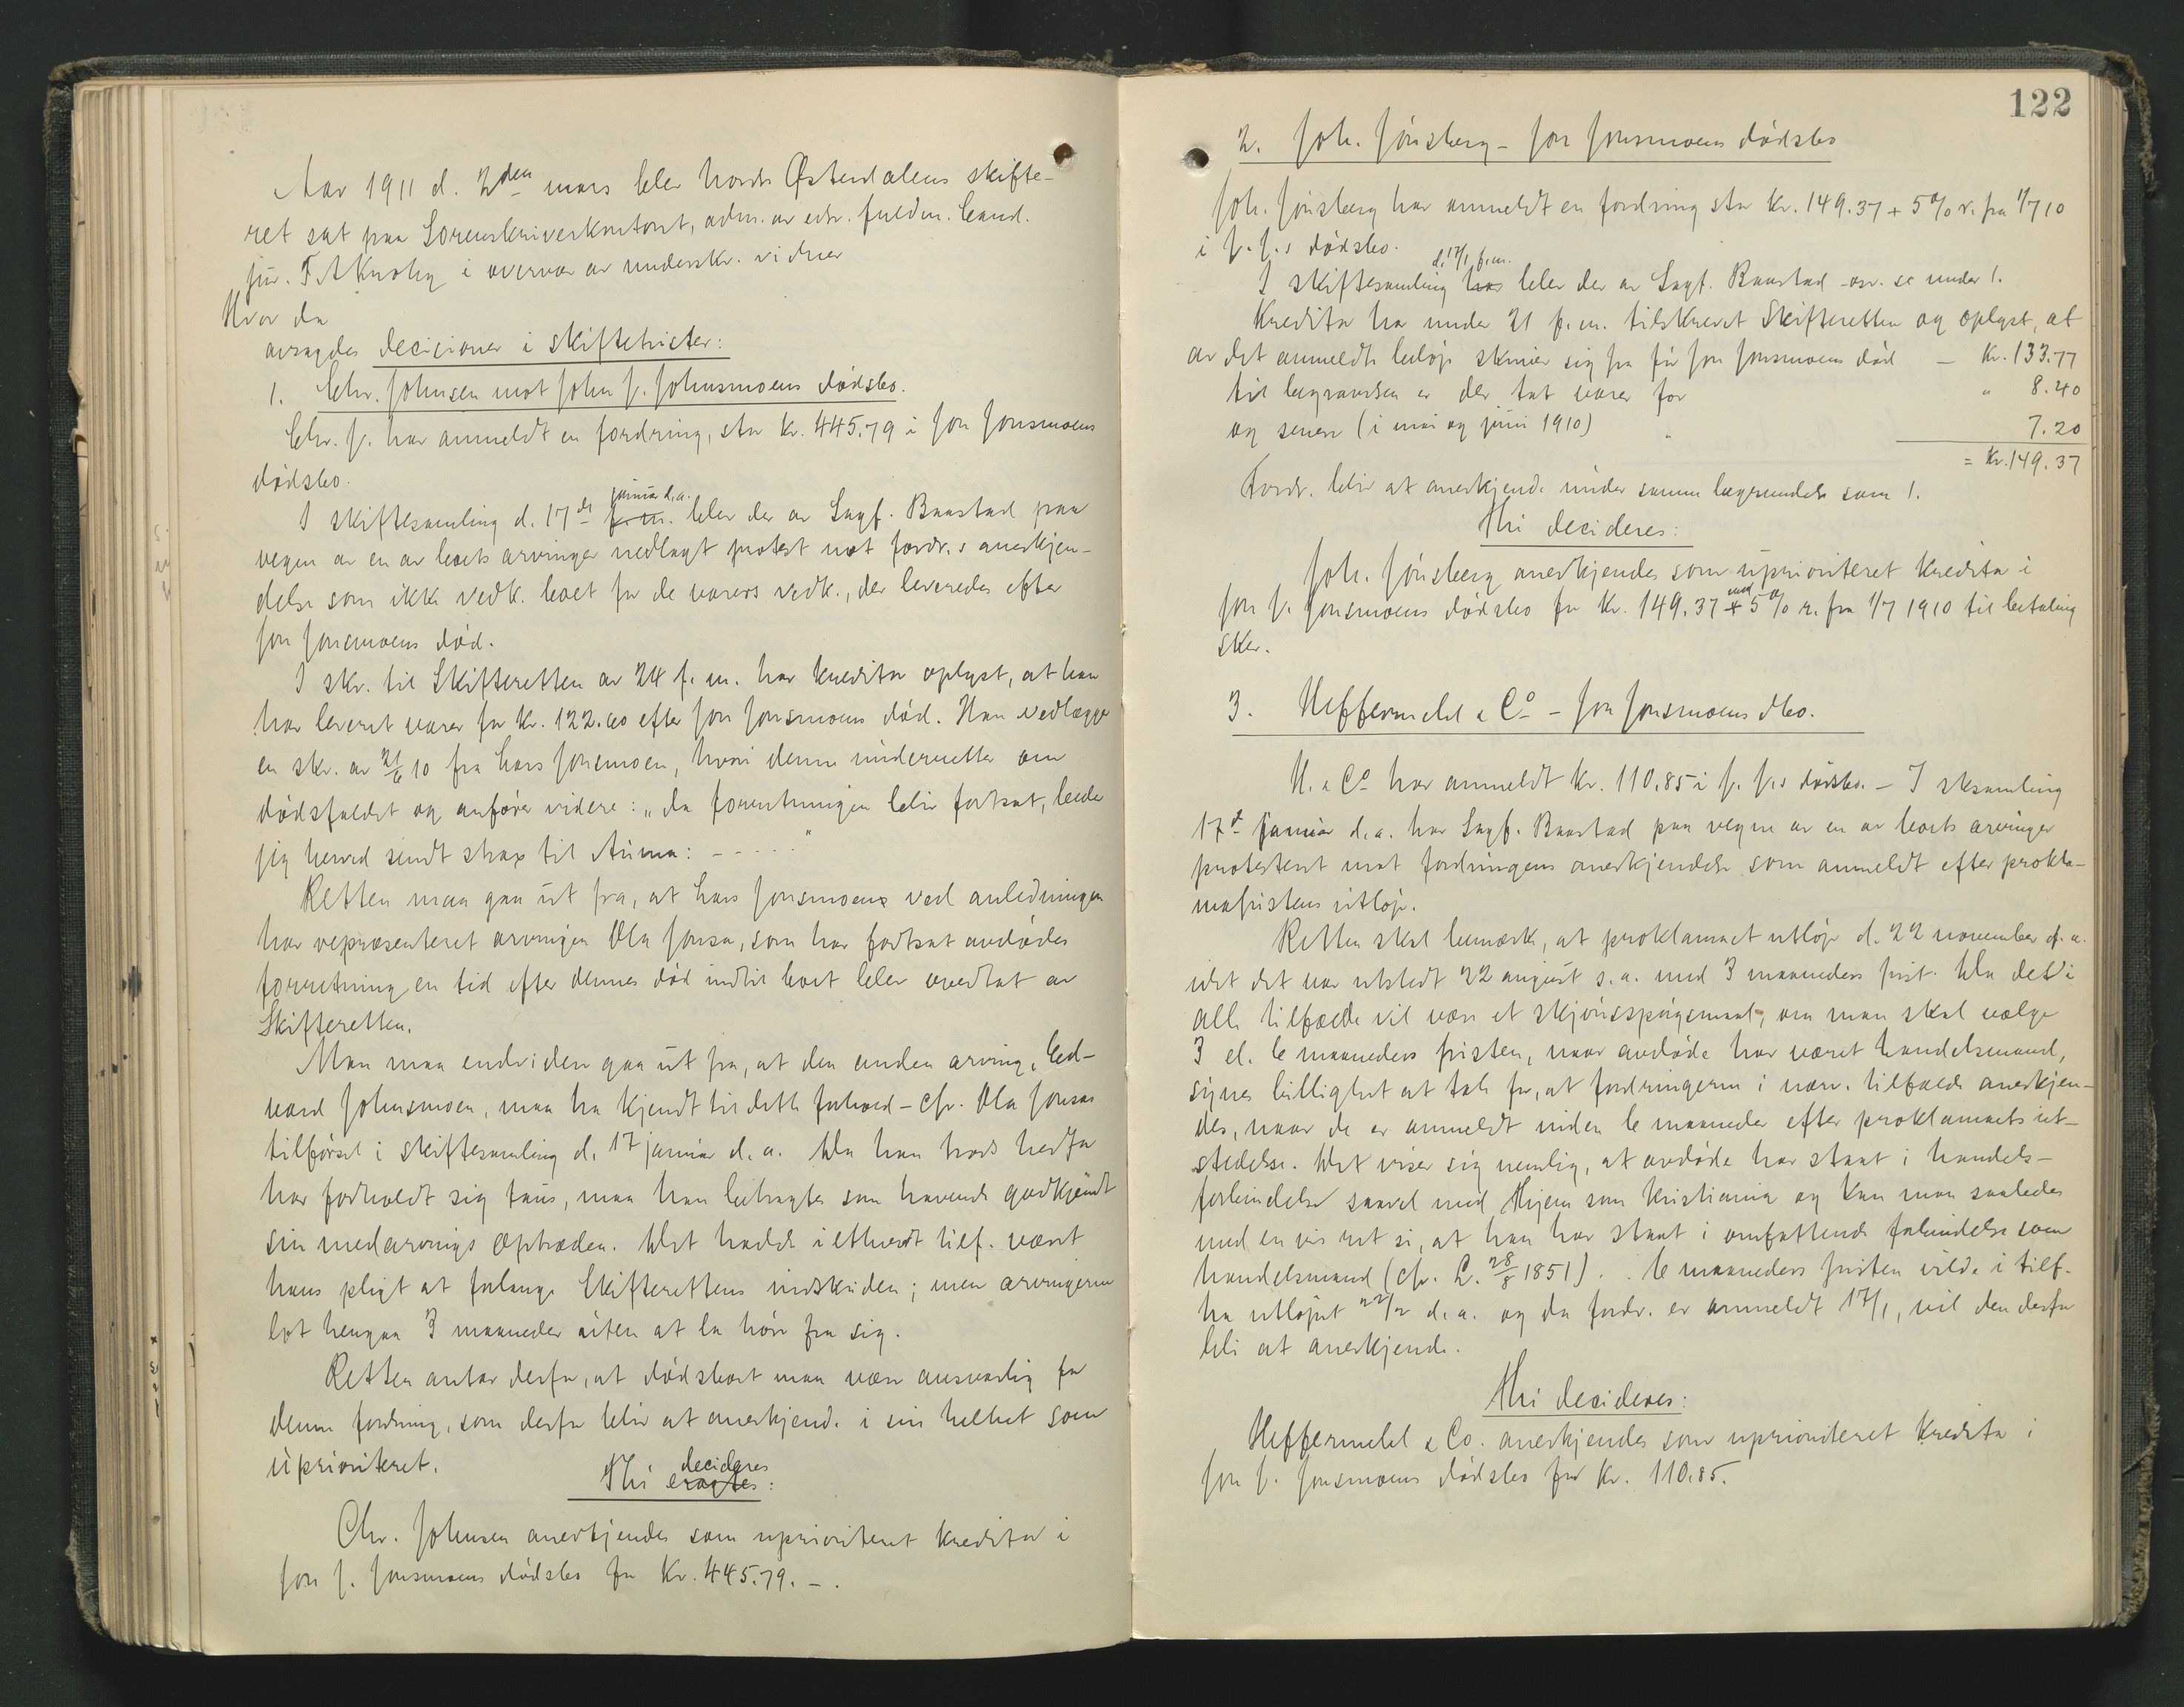 Aar 1911 d. 2den mars blev Nordre Østerdalens skifte-
ret sat paa Sorenskriverkontoret, adm. av edsv. fuldm. cand.
jur. F. A. Knoby i overvær av underskr. vidner
Hvor da
avsagdes decisioner i skiftetvister:
1. Chr. Johnsen mot John J. Johnsmoens dødsbo.
Chr. J. har anmeldt en fordring, stor kr. 445.79 i Jon Jonsmoens
dødsbo.
I skiftesamling d. 17de f. m. januar d.a. blev der av Sagf. Baastad paa
vegne av en av boets arvinger nedlagt protest mot fordr.s anerkjen-
delse som ikke vedk. boet for de varers vedk., der leveredes efter
Jon Jonsmoens død.
I skr. til Skifteretten av 24 f. m. har kreditor oplyst, at han
har leveret varer for kr. 122.60 efter Jon Jonsmoens død. Han vedlægger
en skr. av 21/6 10 fra Lars Jonsmoen, hvori denne underretter om
dødsfaldet og anfører videre: "da forretningen blir fortsat, bedes
jeg herved sendt strax til Auma: - - - - - "
Retten maa gaa ut fra, at Lars Jonsmoen ved anledningen
har repræsenteret arvingen Ola Jonsen, som har fortsat avdødes
forretning en tid efter dennes død indtil boet blev overtat av
Skifteretten.
Man maa endvidere gaa ut fra, at den anden arving, Ed-
vard Johnsmoen, maa ha kjendt til dette forhold - cfr. Ola Jonsens
tilførsel i skiftesamling d. 17 januar d. a. Da han trods herfor
har forholdt sig taus, maa han betragtes som havende godkjendt
sin medarvings optræden. Det hadde i ethvert tilf. været
hans pligt at forlange Skifterettens indskriden; men arvingerne
lot hengaa 3 maaneder uten at la høre fra sig.
Retten antar derfor, at dødsboet maa være ansvarlig for
denne fordring, som derfor blir at anerkjende i sin helhet som
uprioriteret.
Thi eragtes decideres:
Chr. Johnsen anerkjendes som uprioriteret kreditor i
Jon J. Jonsmoens dødsbo for Kr. 445.79. - .
122
2. Joh. Jønsberg - Jon Jonsmoens dødsbo
Joh. Jønsberg har anmeldt en fordring stor kr. 149.37 + 5% r. fra 1/7 10
i J. J.s dødsbo.
I skiftesamling har d. 17/1 f.m. blev der av Sagf. Baastad osv. se under 1.
Kreditor har under 21 f. m. tilskrevet Skifteretten og oplyst, at
av det anmeldte beløp skriver sig fra før Jon Jonsmoens død - kr. 133.77
til begravelsen er der tat varer for " 8.40
og senere (i mai og juni 1910) " 7.20
= Kr. 149.37
Fordr. blir at anerkjende under samme begrundelse som 1.
Thi decideres:
Joh. Jønsberg anerkjendes som uprioriteret kreditor i
Jon J. Jonsmoens dødsbo for kr. 149.37 + med 5% r. fra 1/7 1910 til betaling
sker.
3. Heffermehl & Co - Jon Jonsmoens dbo.
H. & Co har anmeldt kr. 110.85 i J. J.s dødsbo. - I sksamling
17de januar d.a. har Sagf. Baastad paa vegne av en av boets arvinger
protesteret mot fordringens anerkjendelse som anmeldt efter prokla-
mafristens utløp.
Retten skal bemærke, at proklamaet utløp d. 22 november f. a.
idet det var utstedt 22 august s. a. med 3 maaneders frist. Da det i
alle tilfælde vil være et skjønsspørgsmaal, om man skal vælge
3 el. 6 maaneders fristen, naar avdøde har været handelsmand,
synes billighet at tale for, at fordringerne i nærv. tilfælde anerkjen-
des, naar de er anmeldt inden 6 maaneder efter proklamaets ut-
stedelse. Det viser sig nemlig, at avdøde har staat i handels-
forbindelse saavel med Thjem som Kristiania og kan man saaledes
med en vis ret si, at han har staat i omfattende forbindelse som
handelsmand (cfr. L. 28/8 1851). 6 maaneders fristen vilde i tilf.
ha utløpet 22/2 d. a. og da fordr. er anmeldt 17/1, vil den derfor
bli at anerkjende.
Thi decideres:
Heffermehl & Co. anerkjendes som uprioriteret kreditor i
Jon J. Jonsmoens dødsbo for Kr. 110.85.